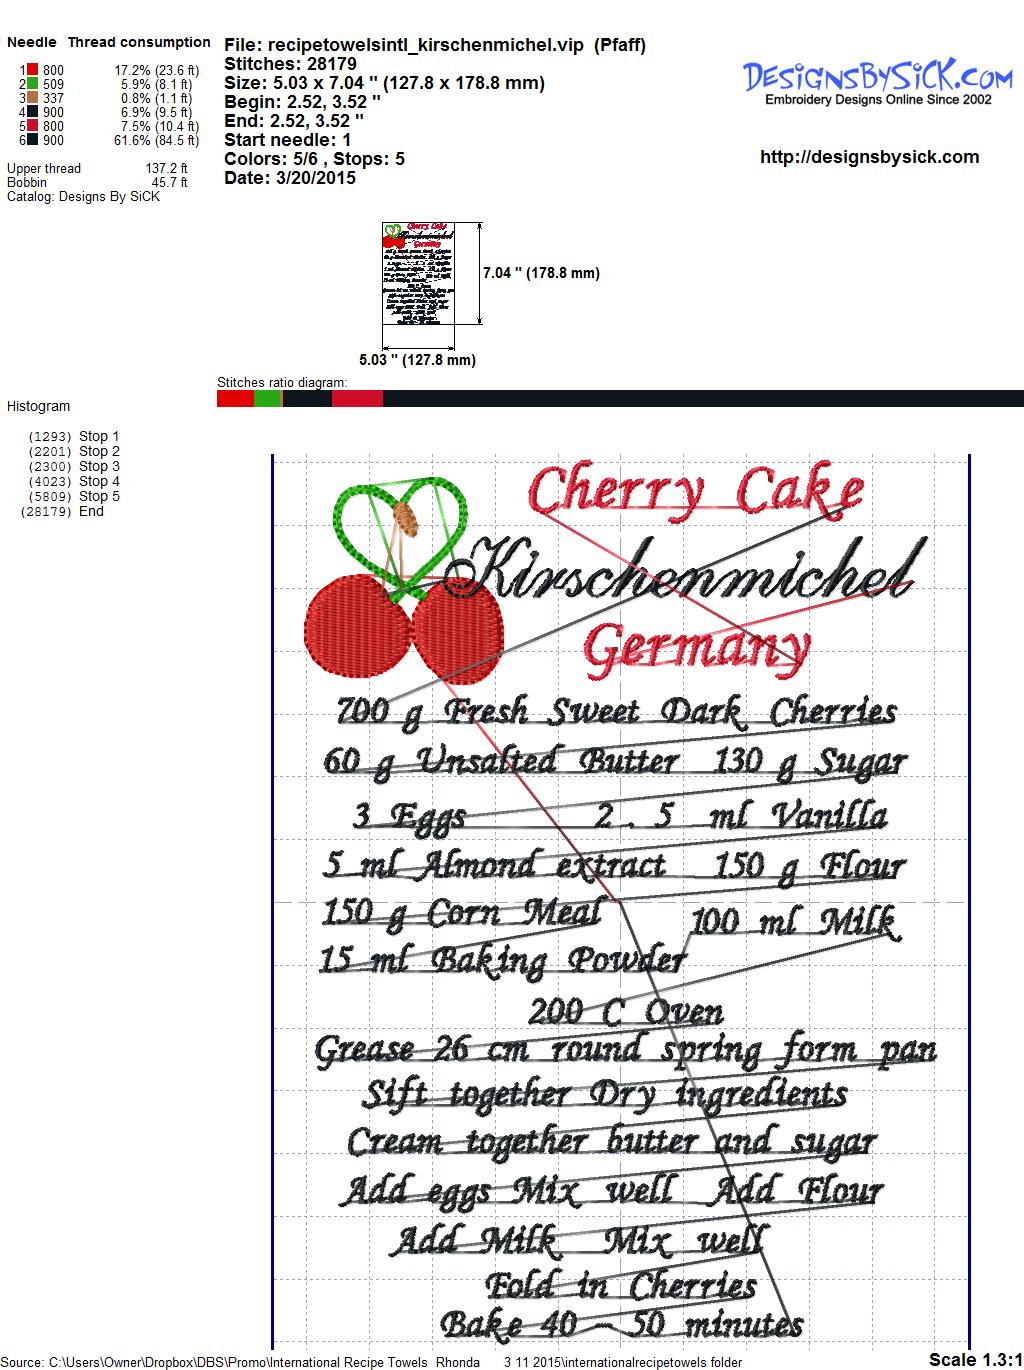 Needle Thread consumption
1 800 17.2% (23.6 ft)
2 509 5.9% (8.1 ft)
3 337 0.8% (1.1 ft)
4 900 6.9% (9.5 ft)
5 800 7.5% (10.4 ft)
6 900 61.6% (84.5 ft)
Upper thread 137.2 ft
Bobbin 45.7 ft
Catalog: Designs By SiCK
File: recipetowelsintl_kirschenmichel.vip (Pfaff)
Stitches: 28179
Size: 5.03 x 7.04 " (127.8 x 178.8 mm)
Begin: 2.52, 3.52 "
End: 2.52, 3.52 "
Start needle: 1
Colors: 5/6 , Stops: 5
Date: 3/20/2015
DESIGNSBYSICK.COM
Embroidery Designs Online Since 2002
http://designsbysick.com
7.04 " (178.8 mm)
5.03 " (127.8 mm)
Stitches ratio diagram:
Histogram
(1293) Stop 1
(2201) Stop 2
(2300) Stop 3
(4023) Stop 4
(5809) Stop 5
(28179) End
Cherry Cake
Kirschenmichel
Germany
700 g Fresh Sweet Dark Cherries
60 g Unsalted Butter 130 g Sugar
3 Eggs 2 . 5 ml Vanilla
5 ml Almond extract 150 g Flour
150 g Corn Meal 100 ml Milk
15 ml Baking Powder
200 C Oven
Grease 26 cm round spring form pan
Sift together Dry ingredients
Cream together butter and sugar
Add eggs Mix well Add Flour
Add Milk Mix well
Fold in Cherries
Bake 40 - 50 minutes
Source: C:\Users\Owner\Dropbox\DBS\Promo\International Recipe Towels Rhonda 3 11 2015\internationalrecipetowels folder
Scale 1.3:1